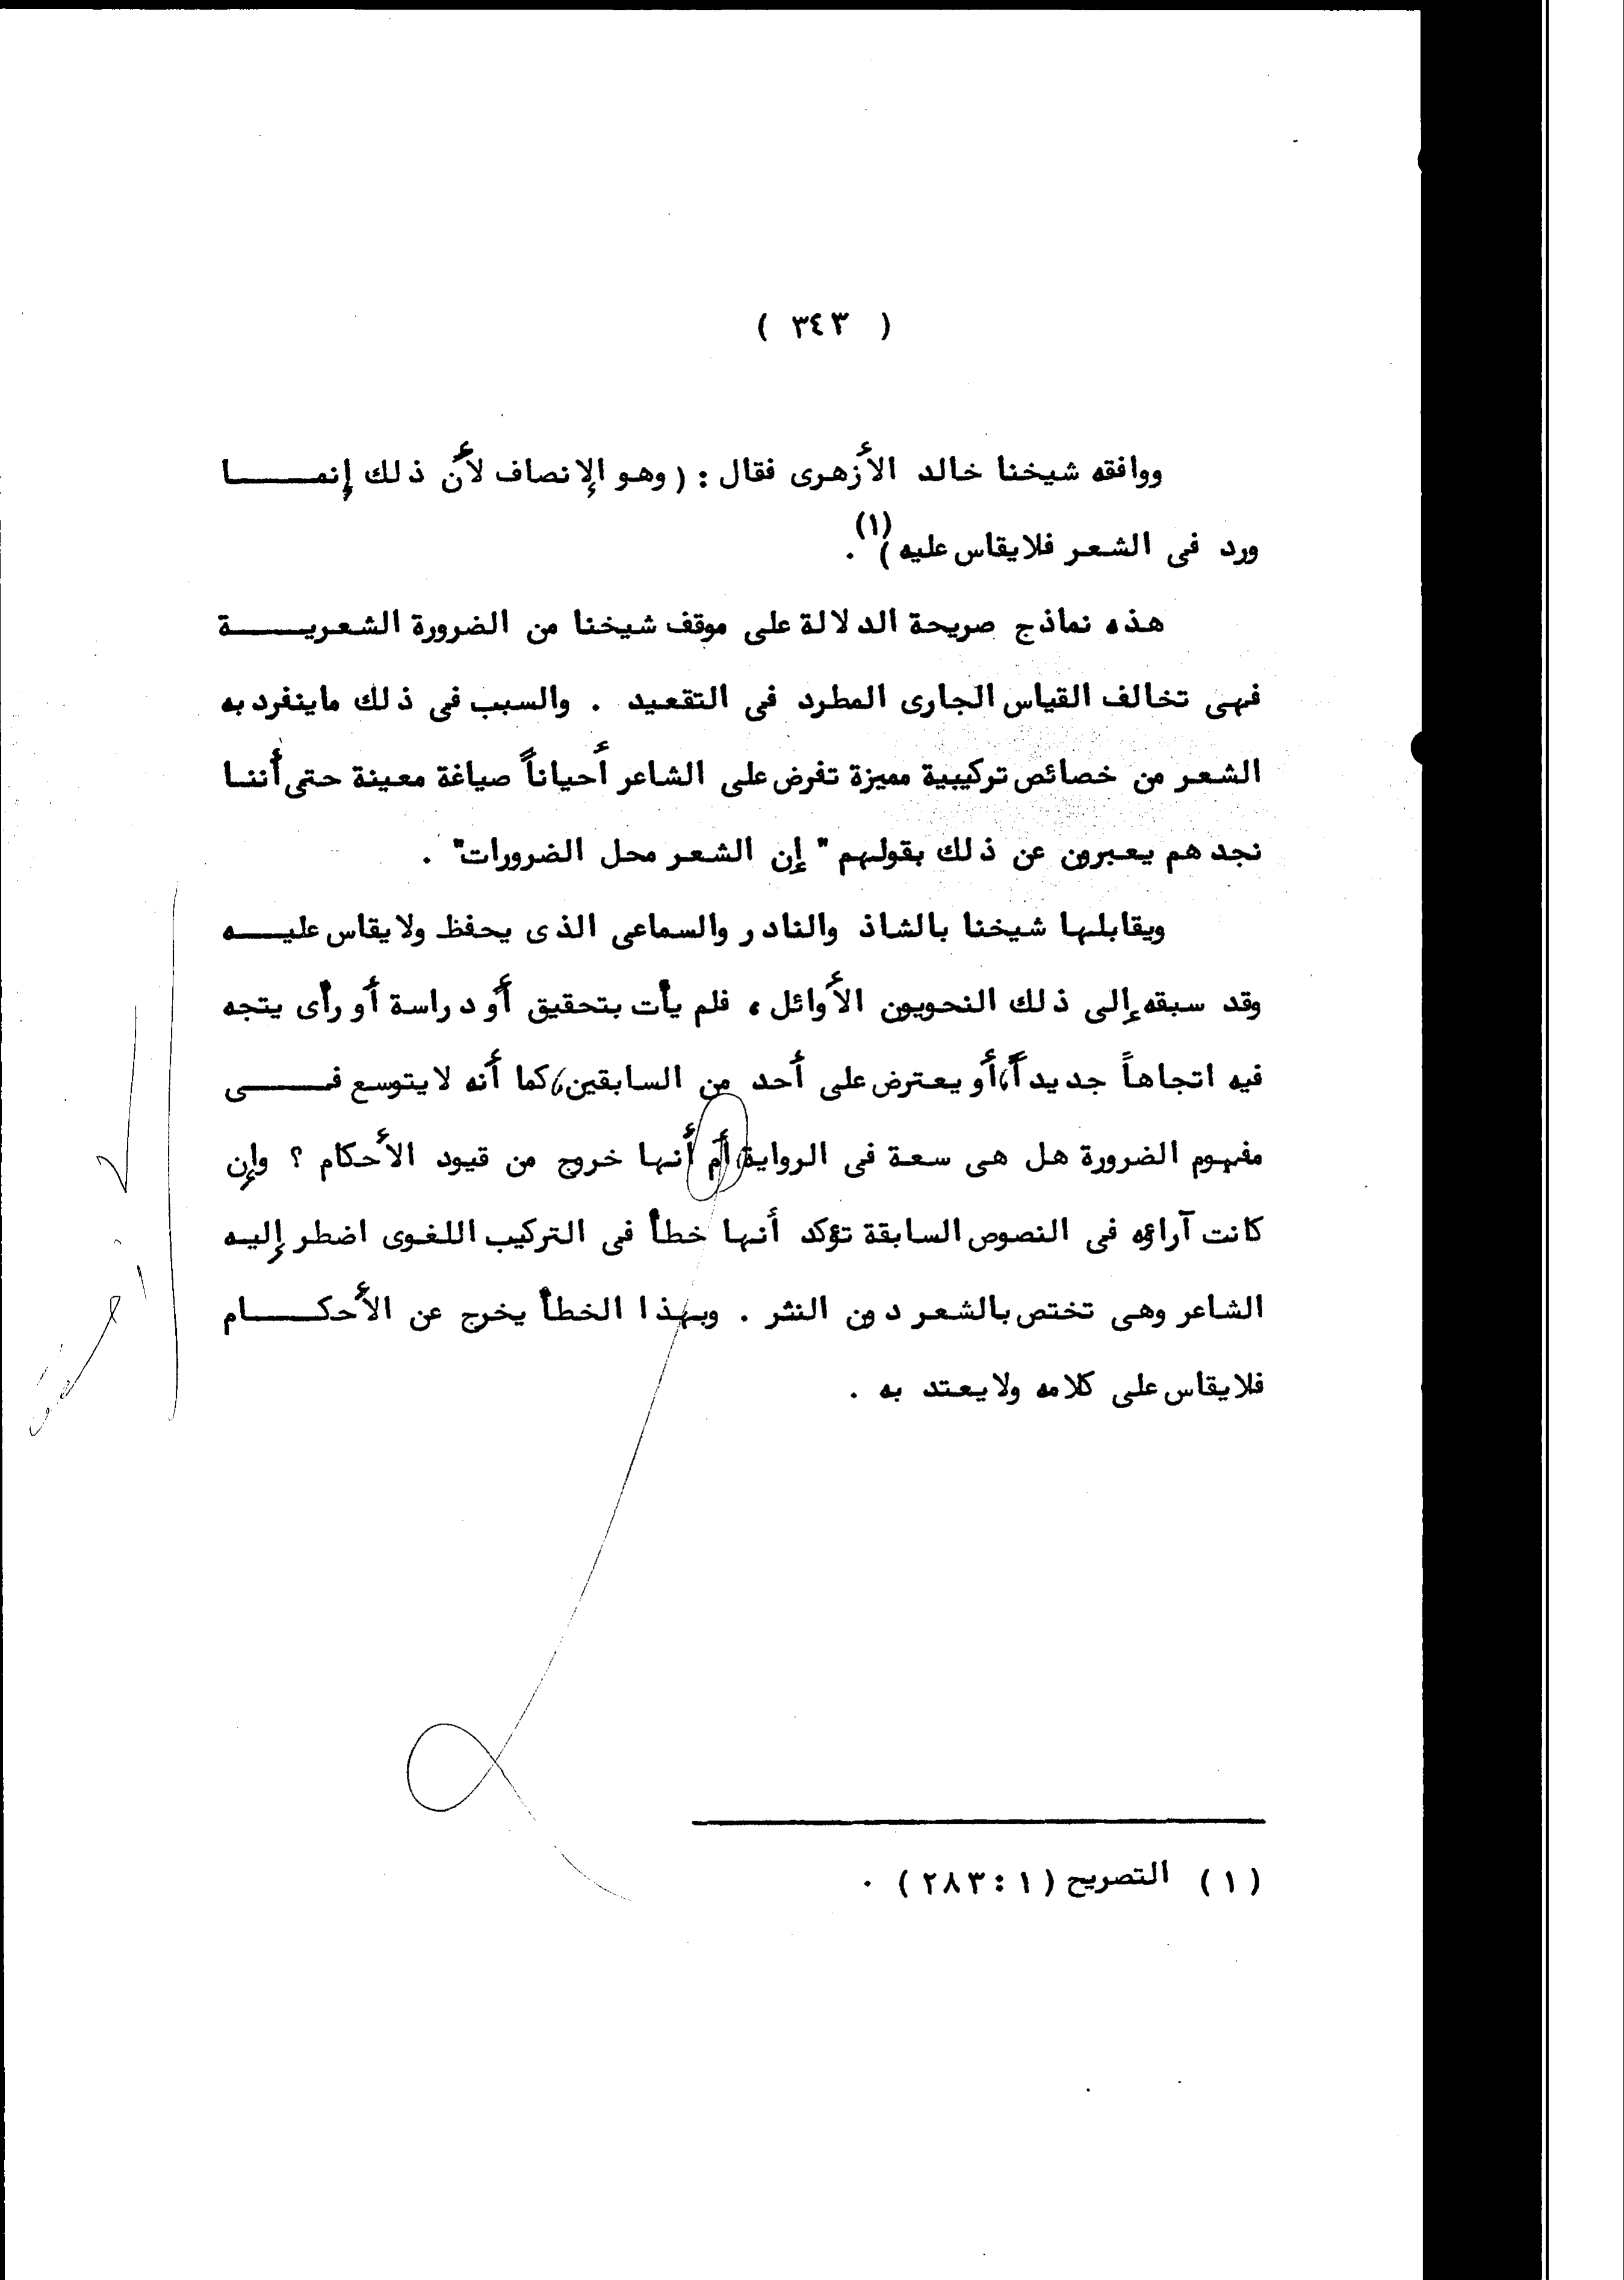 ( ٣٤٣ )
ووافقه شيخنا خالد الأزهرى فقال : ( وهو الإنصاف لأن ذلك إنما
ورد فى الشعر فلايقاس عليه )(١).
هذه نماذج صريحة الدلالة على موقف شيخنا من الضرورة الشعرية
فهى تخالف القياس الجارى المطرد فى التقعيد . والسبب فى ذلك ماينفرد به
الشعر من خصائص تركيبية مميزة تفرض على الشاعر أحياناً صياغة معينة حتى أننا
نجدهم يعبرون عن ذلك بقولهم " إن الشعر محل الضرورات" .
ويقابلها شيخنا بالشاذ والنادر والسماعى الذى يحفظ ولايقاس عليه
وقد سبقه إلى ذلك النحويون الأوائل ، فلم يأت بتحقيق أو دراسة أو رأى يتجه
فيه اتجاهاً جديداً، أو يعترض على أحد من السابقين، كما أنه لايتوسع فى
مفهوم الضرورة هل هى سعة فى الرواية أم أنها خروج من قيود الأحكام ؟ وإن
كانت آراؤه فى النصوص السابقة تؤكد أنها خطأ فى التركيب اللغوى اضطر إليه
الشاعر وهى تختص بالشعر دون النثر . وبهذا الخطأ يخرج عن الأحكام
فلايقاس على كلامه ولايعتد به .
( ١ ) التصريح ( ١ : ٢٨٣ ) .